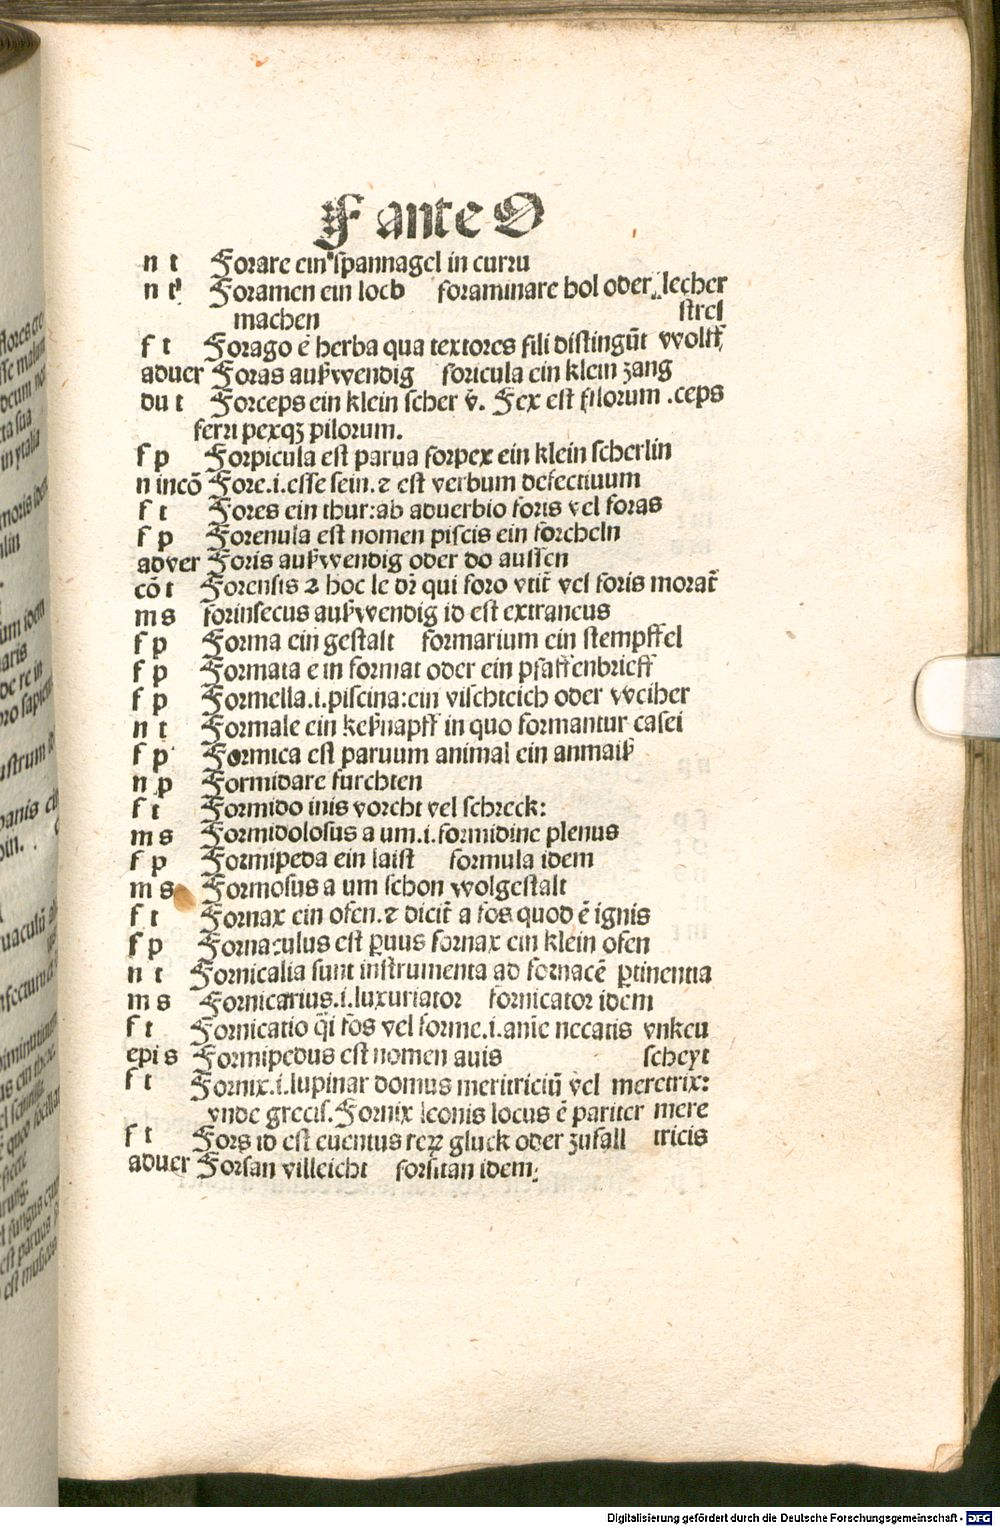 F ante O
n t Forare ein spannagel in curru
n t Foramen ein loch foraminare hol oder lecher
machen strel
f t Forago ē herba qua textores fili distingūt wolff
aduer Foras außwendig foricula ein klein zang
du t Forceps ein klein scher v̄. Fex est filorum .ceps
ferri pexqꝫ pilorum.
f p Forpicula est parua forpex ein klein scherlin
n incō Fore.i.esse sein.⁊ est verbum defectiuum
f t Fores ein thur:ab aduerbio foris vel foras
f p Forenula est nomen piscis ein forcheln
adver Foris außwendig oder do aussen
cō t Forensis ⁊ hoc le dr̄ qui foro vtit̄ vel foris morat̄
m s forinsecus außwendig id est extraneus
f p Forma ein gestalt formarium ein stempffel
f p Formata e in format oder ein pfaffenbrieff
f p Formella.i.piscina:ein vischteich oder vveiher
n t Formale ein keßnapff in quo formantur casei
f p Formica est paruum animal ein anmaiß
n p Formidare furchten
f t Formido inis vorcht vel schreck:
m s Formidolosus a um.i.formidine plenus
f p Formipeda ein laist formula idem
m s Formosus a um schon wolgestalt
f t Fornax ein ofen.⁊ dicit̄ a fos quod ē ignis
f p Fornaculus est ꝑuus fornax ein klein ofen
n t Fornicalia sunt instrumenta ad fornacē ꝑtinentia
m s Fornicarius.i.luxuriator fornicator idem
f t Fornicatio q̄i fos vel forme.i.anīe necatis vnkeu
epi s Formipedus est nomen auis scheyt
f t Fornix.i.lupinar domus meritriciū vel meretrix:
vnde grecis.Fornix leonis locus ē pariter mere
f t Fors id est euentus reꝝ gluck oder zufall tricis
aduer Forsan villeicht forsitan idem:
Digitalisierung gefördert durch die Deutsche Forschungsgemeinschaft - DFG